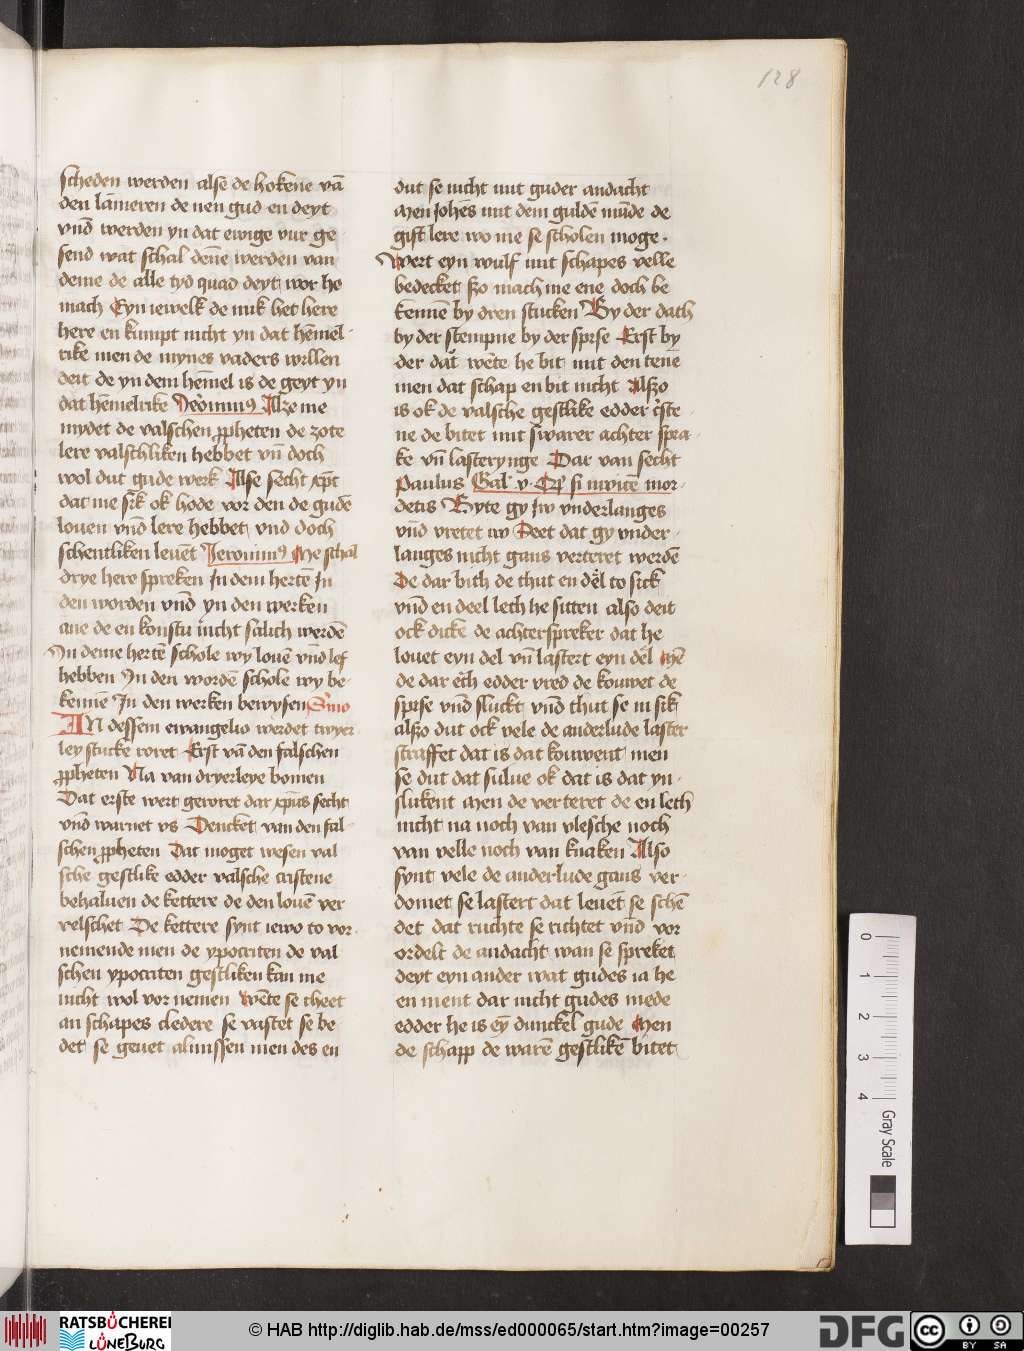 128
scheden werden alse de hokene vā
den lāmeren de nen gud en deyt
vn̄d werden yn dat ewige vur ge
send wat schal den̄e werden van
deme de alle tyd quad deyt wor he
mach Eyn iewelk de mik het here
here en kumpt nicht yn dat hēmel-
rike men de mynes vaders willen
deit de yn dem hēmel is de geyt yn
dat hēmelrike Jeronimus Alze me
mydet de valschen ꝓpheten de zote
lere valschliken hebbet vn̄ doch
wol dut gude werk Alse secht xp̄c
dat me sik ok hode vor den de gudē
louen vn̄d lere hebbet vnd doch
schentliken leuēt Jeronimus Me schal
drye here spreken Jn dem hertē Jn
den worden vn̄d yn den werken
ane de en konstu nicht salich werdē
Jn deme hertē schole wy louē vn̄d lef
hebben Jn den wordē schole wy be-
ken̄ne Jn den werken bewysen Sm̄o
IN dessem ewangelio werdet twyer
ley stucke roret Erst vā den falschen
ꝓpheten Na van dryerleye bomen
Dat erste wert geroret dar xp̄us secht
vn̄d warnet vs Dencket van den fal-
schen ꝓpheten Dat moget wesen val
sche gestlike edder valsche cristene
behaluen de kettere de den louē ver
velschet De kettere synt iewo to vor
nemende men de ypocriten de val
schen ypocriten gestliken kan me
nicht wol vor nemen wēte se theet
an schapes cledere se vastet se be
det se geuet almissen men des en
dut se nicht mit guder andacht
Men Johēs mit dem guldē mūde de
gift lere wo me se scholen moge
Wert eyn wulf mit schapes velle
bedecket szo mach me ene doch be
ken̄en by dren stucken By der dath
by der stempne by der spise Erst by
der dat wēte he bit mit den tenē
men dat schap en bit nicht Alszo
is ok de valsche gestlike edder criste
ne de bitet mit swarer achter spra-
ke vn̄ lasterynge Dar van secht
Paulus Gal v Qp̄ si inuicē mor-
detis Byte gy Jw vnderlanges
vn̄d vretet iw Seet dat gy vnder
langes nicht gans verteret werdē
De dar bith de thut en del to sick
vn̄d en deel lech he sitten also deit
ock dicke de achterspreker dat he
louet eyn del vn̄ lastert eyn dēl Mē
de dar eth edder vred de kouwet de
spise vn̄d sluckt vn̄d thut se in sik
alszo dut ock vele de anderlude laster
straffet dat is dat kouwent men
se dut dat sulue ok dat is dat yn-
slukent Men de verteret de en lech
nicht na noch van vlesche noch
van velle noch van knaken Also
synt vele de anderlude gans ver-
domet se lastert dat leuēt se schē
det dat ruchte se richtet vn̄d vor
ordelt de andacht wan se spreket
deyt eyn ander wat gudes ia he
en ment dar nicht gudes mede
edder he is eȳ dunckel gude Men
de schapp de warē gestlikē bitet
0
1
2
3
4
Gray Scale
RATSBÜCHEREI
LÜNEBURG
© HAB http://diglib.hab.de/mss/ed000065/start.htm?image=00257
DFG
cc
BY SA